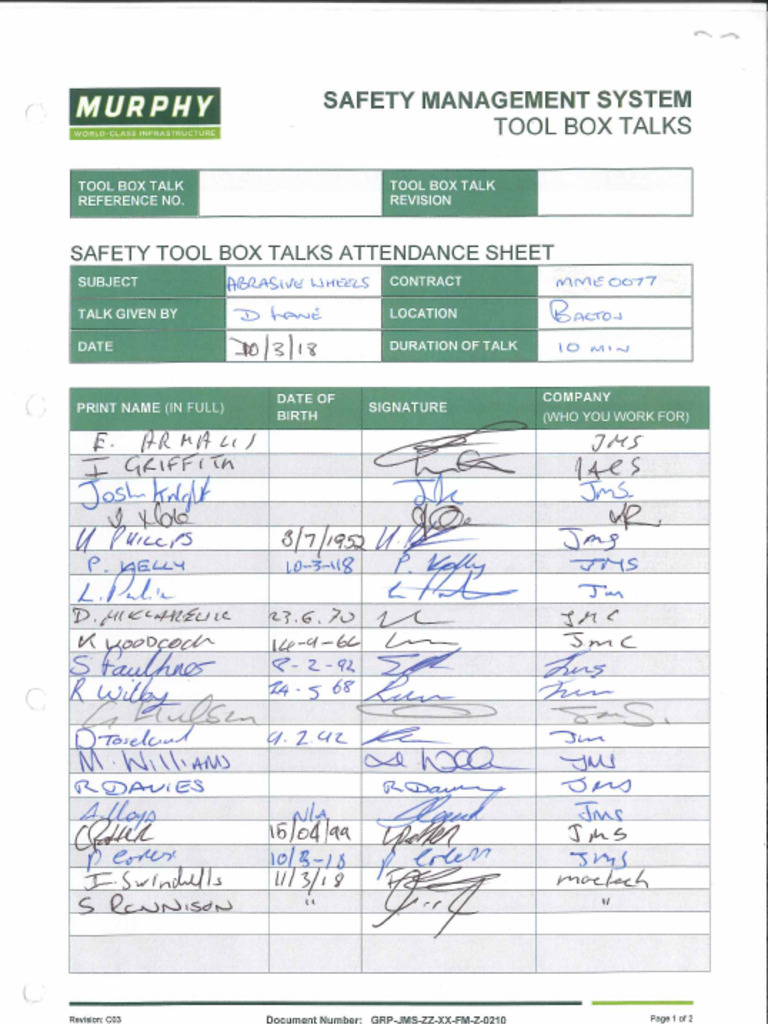 MURPHY
WORLD-CLASS INFRASTRUCTURE
SAFETY MANAGEMENT SYSTEM
TOOL BOX TALKS
TOOL BOX TALK REFERENCE NO.
TOOL BOX TALK REVISION
SAFETY TOOL BOX TALKS ATTENDANCE SHEET
SUBJECT ABRASIVE WHEELS CONTRACT MME0077
TALK GIVEN BY D LANE LOCATION BACTON
DATE 10/3/18 DURATION OF TALK 10 MIN
PRINT NAME (IN FULL) DATE OF BIRTH SIGNATURE COMPANY (WHO YOU WORK FOR)
E. ARMALIS JMS
I GRIFFITH
Josh Knight JMS
U PHILLIPS 3/7/1952 JMS
P. KELLY 10-3-118 P. Kelly JMS
L. Jm
D. 23.6.70 JMC
K WOODCOCK JMC
S Faulkner 8-2-92
R Wilby 24-5 68
JMS.
D Toseland 9.2.92 Jm
M. WILLIAMS JMS
R DAVIES R Davies JMS
A Lloyd N/A JMS
C Potter 15/04/99 JMS
P 10/3-18 P JMS
I. Swindells 11/3/18
S RENNISON " "
Revision: C03 Document Number: GRP-JMS-ZZ-XX-FM-Z-0210 Page 1 of 2